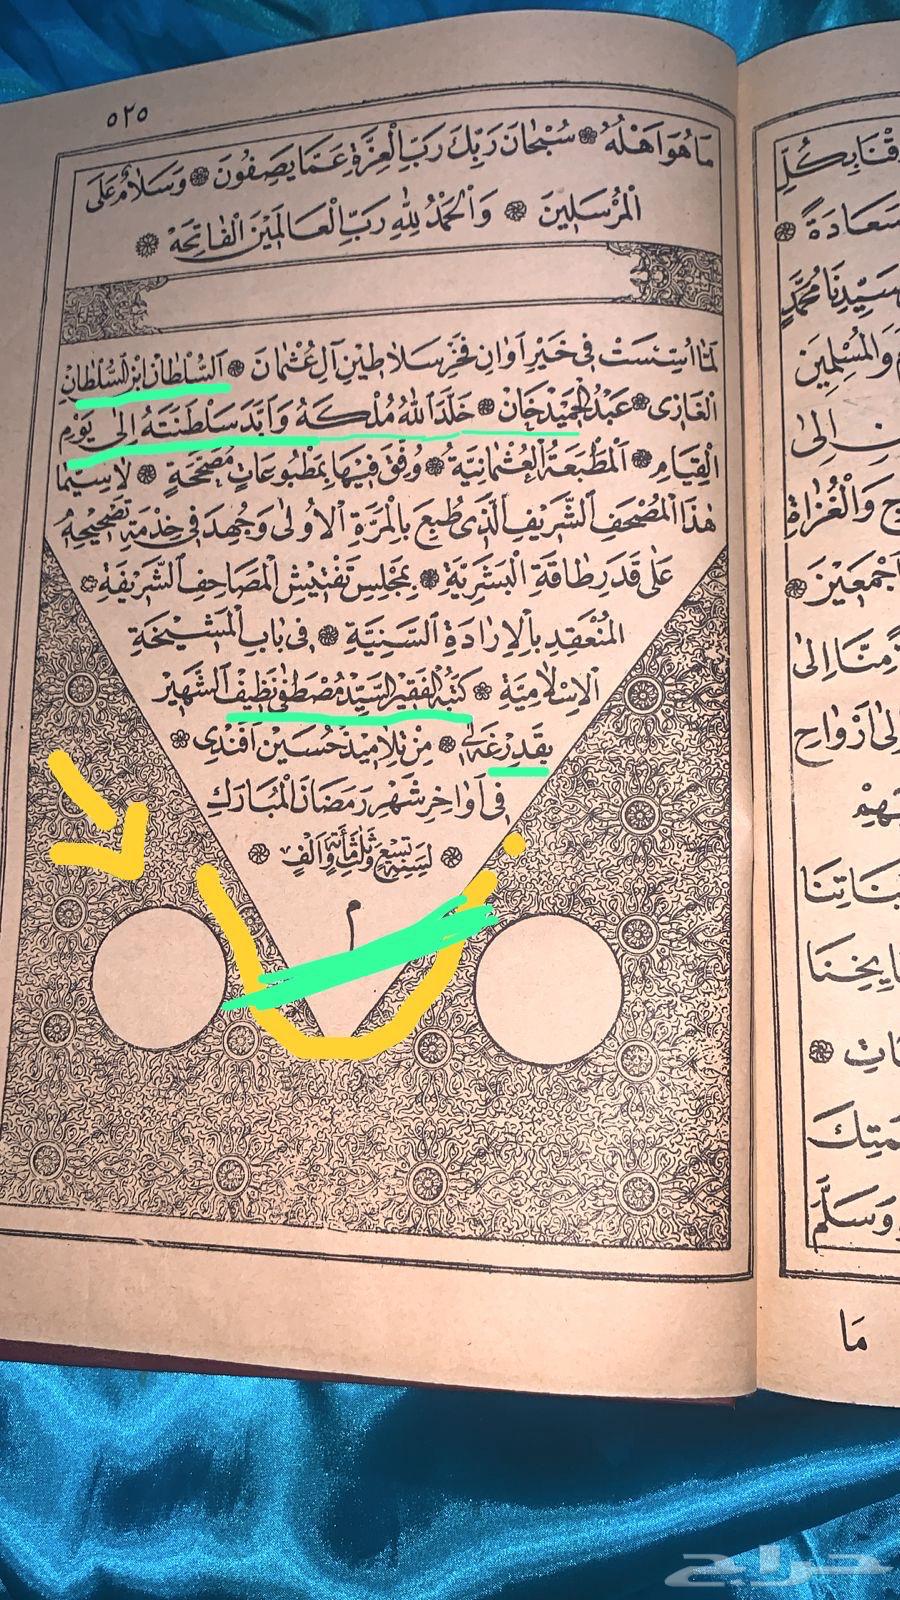 ٥٢٥
مَا هُوَ اَهْلُهُ ❁ سُبْحَانَ رَبِّكَ رَبِّ الْعِزَّةِ عَمَّا يَصِفُونَ ❁ وَسَلَامٌ عَلَى
الْمُرْسَلِينَ ❁ وَالْحَمْدُ لِلّٰهِ رَبِّ الْعَالَمِينَ الْفَاتِحَهْ ❁
لَمَّا اسِّسَتْ فِى خَيْرِ اَوَانِ فَخْرِ سَلَاطِينِ آلِ عُثْمَانَ ❁ اَلسُّلْطَانْ ابْنِ السُّلْطَانِ
الْغَازِى ❁ عَبْدُ الْحَمِيدْ خَانْ ❁ خَلَّدَ اللهُ مُلْكَهُ وَاَبَّدَ سَلْطَنَتَهُ اِلٰى يَوْمِ
الْقِيَامِ ❁ اَلْمَطْبَعَةُ الْعُثْمَانِيَّةُ ❁ وُفِّقَ فِيهَا بِمَطْبُوعَاتٍ مُصَحَّحَةٍ ❁ لَاسِيَّمَا
هٰذَا الْمُصْحَفِ الشَّرِيفِ الَّذِى طُبِعَ بِالْمَرَّةِ الْاُولٰى وَجُهِدَ فِى خِدْمَةِ تَصْحِيحِهِ
عَلٰى قَدَرِ طَاقَةِ الْبَشَرِيَّةِ ❁ بِمَجْلِسِ تَفْتِيشِ الْمَصَاحِفِ الشَّرِيفَةِ ❁
الْمُنْعَقِدِ بِالْاِرَادَةِ السَّنِيَّةِ ❁ فِى بَابِ الْمَشِيخَةِ
الْاِسْلَامِيَّةِ ❁ كَتَبَهُ الْفَقِيرُ السَّيِّدْ مُصْطَفٰى نَظِيفْ الشَّهِيرْ
بِقَدِرْغَهلِى ❁ مِنْ تَلَامِيذِ حُسَيْنْ اَفَنْدِى ❁
فِى اَوَاخِرِ شَهْرِ رَمَضَانَ الْمُبَارَكِ
❁ لِسَنَةِ تِسْعٍ وَثَلٰثِمِائَةٍ وَاَلْفٍ ❁
م
سَعَادَةً ❁
سَيِّدِنَا مُحَمَّدٍ
وَالْمُسْلِمِينَ
اِلٰى
وَالْغُزَاةِ
اَجْمَعِينَ ❁
مِنَّا اِلٰى
اَرْوَاحِ
وَسَلَّمَ
مَا
حراج